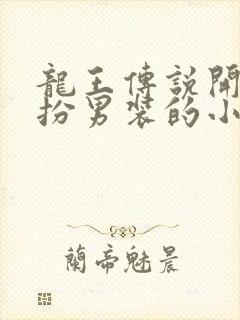 龍王傳説開
扮男裝的小
蘭帝魅晨